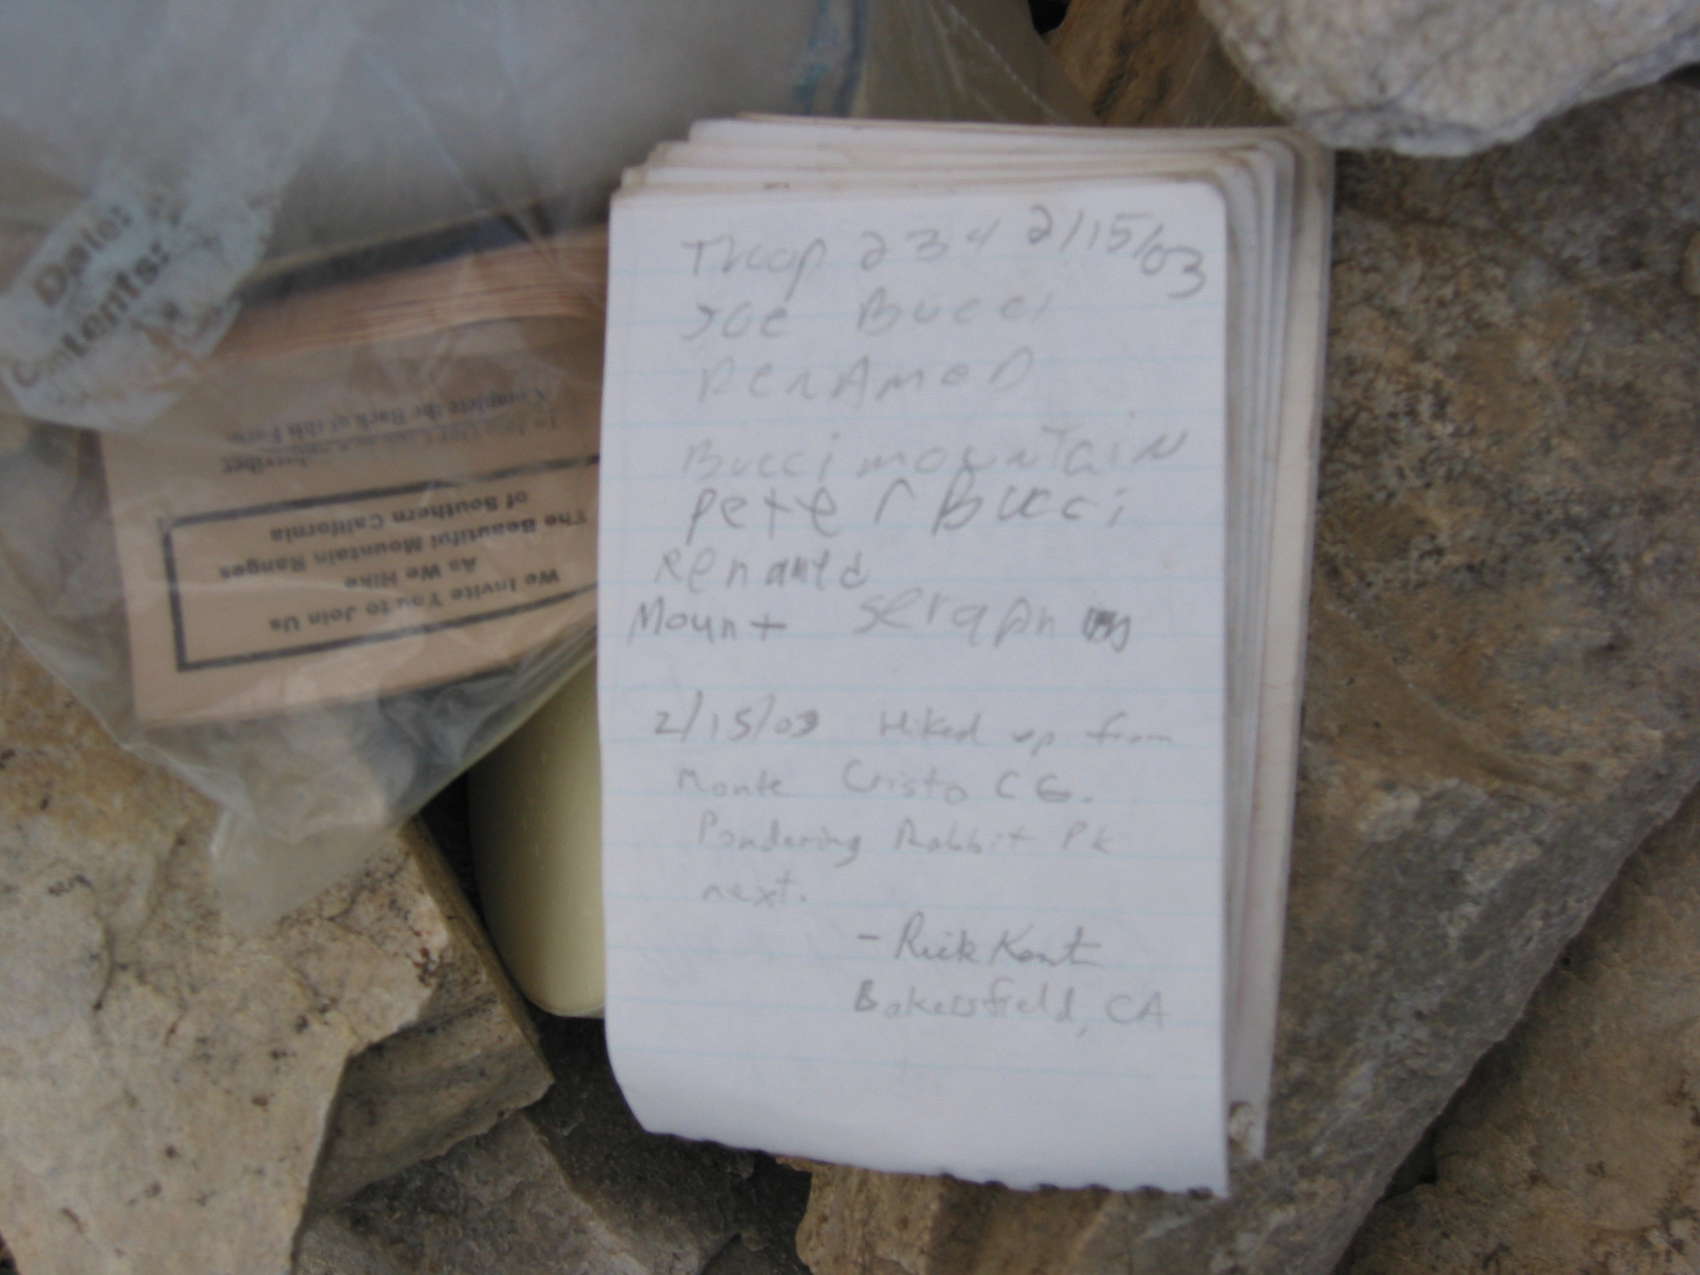 Troop 234 2/15/03
Joe Bucci
RenAmeD
Bucci mountain
peter Bucci
Renamed
Mount seraph
2/15/03 Hiked up from
Monte Cristo CG.
Pondering Rabbit Pk
next.
- Rick Kent
Bakersfield, CA
Date:
Contents:
We Invite You to Join Us
As We Hike
The Beautiful Mountain Ranges
of Southern California
Complete the Back of this Form